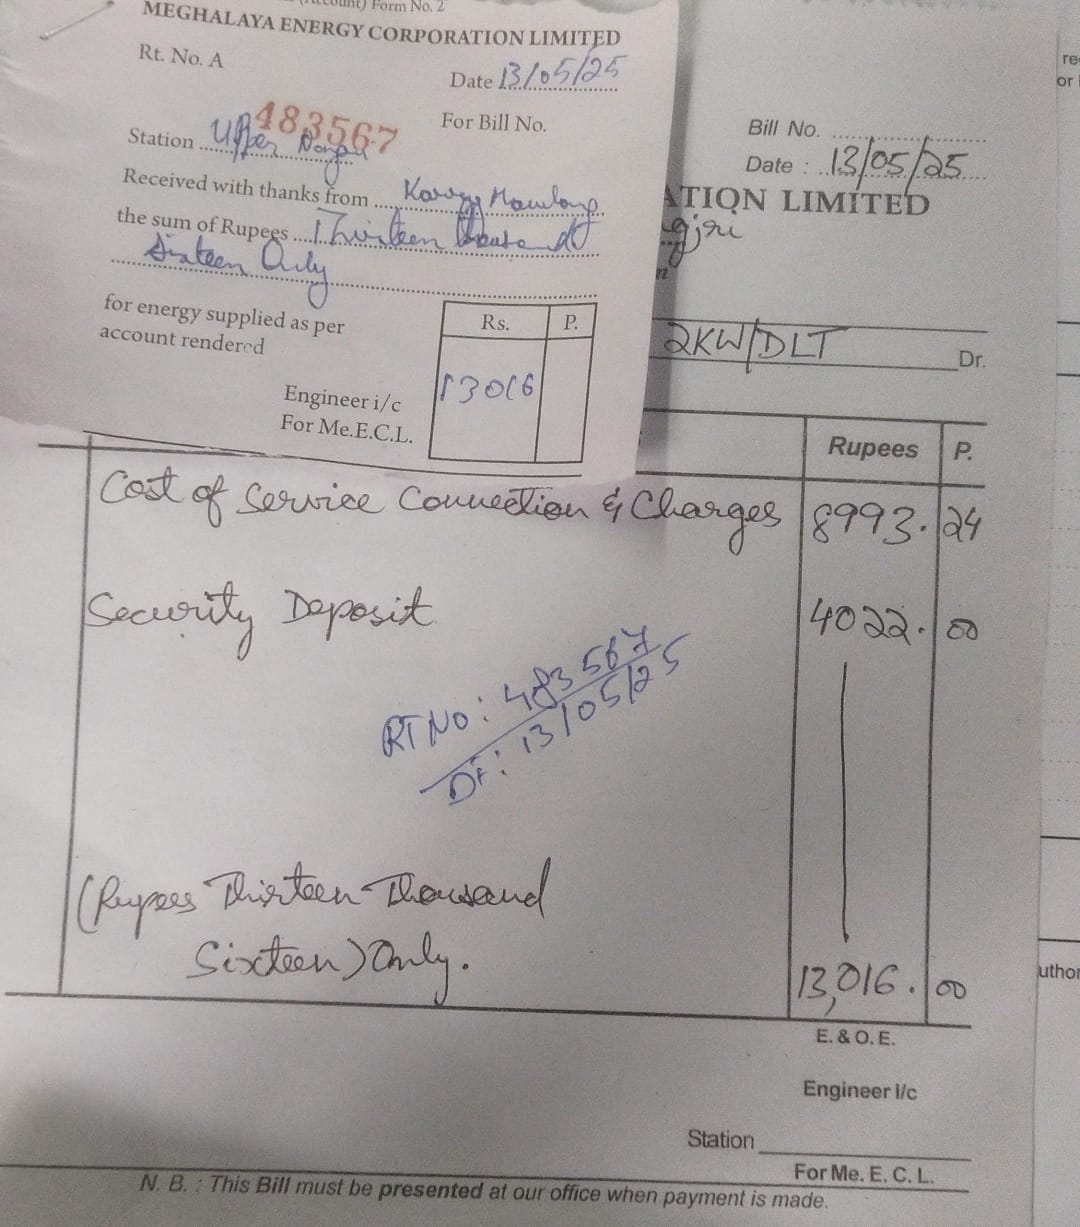 (Account) Form No. 2
MEGHALAYA ENERGY CORPORATION LIMITED
Rt. No. A
Date 13/05/25
483567
For Bill No.
Station Upper
Received with thanks from
the sum of Rupees Thirteen thousand
Sixteen Only
for energy supplied as per
account rendered
Rs. P.
13016
Engineer i/c
For Me.E.C.L.
Bill No.
Date : 13/05/25
ATION LIMITED
2KW/DLT
Dr.
Rupees P.
Cost of Service Connection & Charges 8993.24
Security Deposit 4022.00
RT NO: 483567
Dt: 13/05/25
(Rupees Thirteen Thousand
Sixteen) Only.
13,016.00
E. & O. E.
Engineer I/c
Station
For Me. E. C. L.
N. B. : This Bill must be presented at our office when payment is made.
re
or
uthor